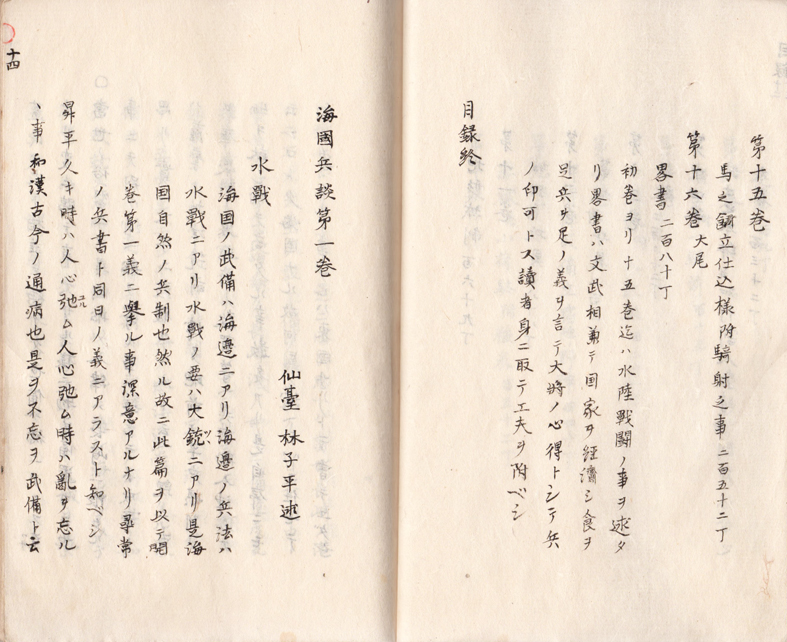 第十五巻
馬之飼立仕込様附騎射之事 二百五十二丁
第十六巻 大尾
畧書 二百八十丁
初巻ヨリ十五巻迄ハ水陸戰闘ノ事ヲ述タ
リ畧書ハ文武相兼テ国家ヲ経濟シ食ヲ
足兵ヲ足ノ義ヲ言テ大将ノ心得トシテ兵
ノ印可トス讀者身ニ取テ工夫ヲ附ベシ
目録終
海國兵談第一巻
仙臺 林子平述
水戰
海国ノ武備ハ海邉ニアリ海邉ノ兵法ハ
水戰ニアリ水戰ノ要ハ大銃ニアリ是海
国自然ノ兵制也然ル故ニ此篇ヲ以テ開
巻第一義ニ擧ル事深意アルナリ尋常
ノ兵書ト同日ノ義ニアラスト知ベシ
昇平久キ時ハ人心弛ム人心弛ム時ハ亂ヲ忘ル
ヽ事和漢古今ノ通病也是ヲ不忘ヲ武備ト云
十四